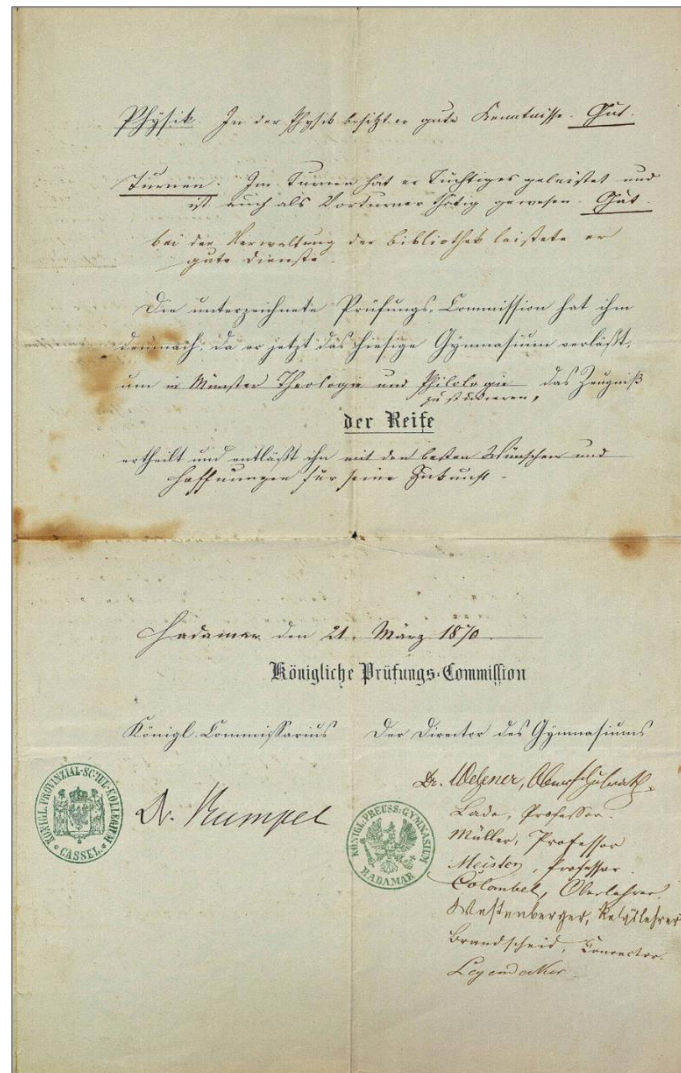 Physik. In der Physik besitzt er gute Kenntnisse. Gut.
Turnen. Im Turnen hat er Tüchtiges geleistet und
ist auch als Vorturner thätig gewesen. Gut.
bei der Verwaltung der Bibliothek leistete er
gute Dienste.
Die unterzeichnete Prüfungs-Commission hat ihm
demnach, da er jetzt das hiesige Gymnasium verläßt,
um in Münster Theologie und Philologie das Zeugniß
zu studieren,
der Reife
ertheilt und entläßt ihn mit den besten Wünschen und
Hoffnungen für seine Zukunft.
Hadamar den 21. März 1870.
Königliche Prüfungs-Commission
Königl. Commissarius
Der Director des Gymnasiums
KÖNIGL. PROVINZIAL-SCHUL-KOLLEGIUM
CASSEL
Dr. Rumpel
KÖNIGL. PREUSS: GYMNASIUM
HADAMAR
Dr. Oberschulrath.
Lade, Professor.
Müller, Professor
Meister, Professor.
Colombel, Oberlehrer.
Westenberger, Religslehrer
Brandscheid, Conrector.